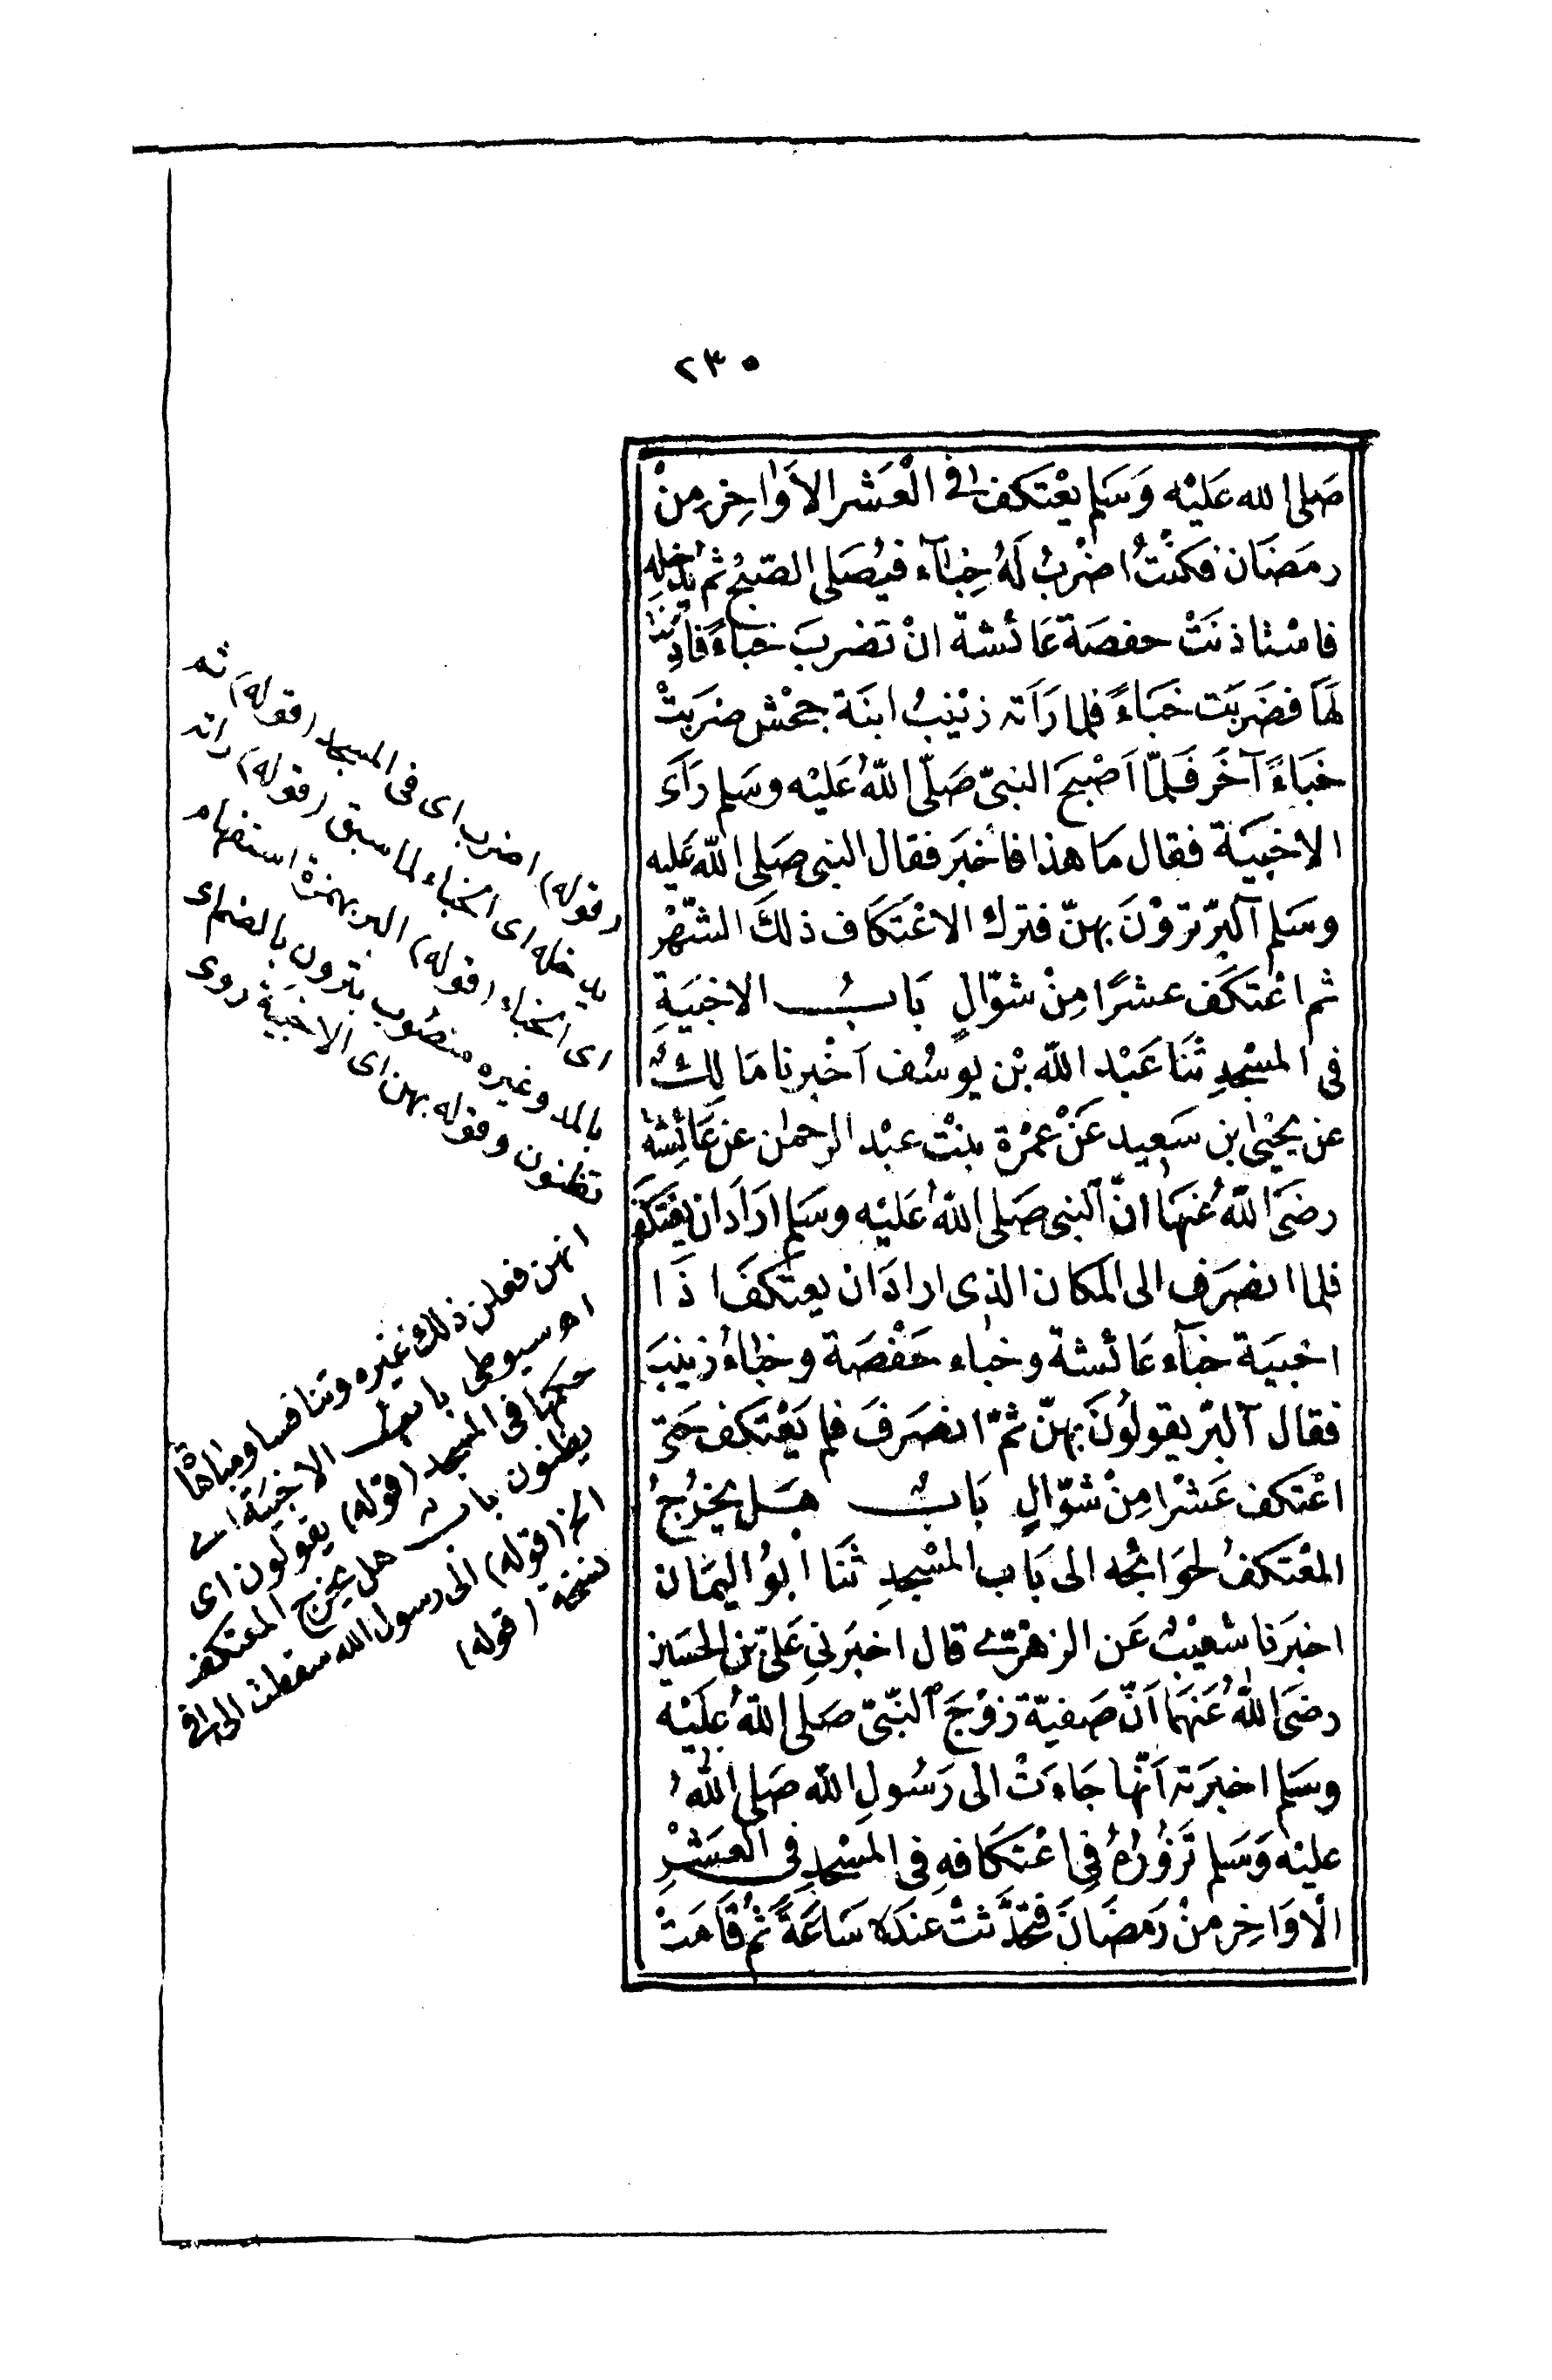 ٢٣٥
صَلى الله عَليْه وَسَلم يعْتكف في الْعَشر الأوَاخِرِ مِنْ
رمَضَان فكنْتُ اضْربُ لَهُ خِبَآء فيُصَلى الصّبحُ ثم يُدخله
فاسْتاذنَتْ حفصَة عَائشة انْ تضربَ خباءً فاذِنَتْ
لهَا فضَربَت خبَاءً فلما رَاَته زيْنبُ ابنَة جحْش ضرَبَتْ
خبَاءً آخَر فَلمّا اَصْبحَ النبىّ صَلّى اللّهُ عَليْه وسَلم رَاَى
الاخبيَة فقال مَا هذا فاخبَر فقال النبى صَلى اللّه عَليه
وسَلم آلبرّ تروْنَ بهنّ فترك الاعْتكاف ذلكَ الشّهْر
ثم اعْتكَف عشرًا مِنْ شوّالٍ بَابُ الاخبيَةِ
فى المسْجدِ ثنَا عَبْد اللّه بْن يوسُف اَخْبرنا مَالِكٌ
عن يحْيىٰ ابن سَعِيد عَنْ عمْرة بنْت عبْد الرحمٰن عن عَائِشة
رضىَ اللّهُ عَنهَا انّ النبى صَلى اللّهُ عَليْه وسَلم ارَادَ ان يعْتكف
فلما انصَرَف الى المكان الذى ارادَ ان يعتكفَ اذَا
اخبيَة خبَآء عَائشة وخبَاء حَفْصَة وخبَاءُ زينبَ
فقال آلبرّ يقولُونَ بهنّ ثمّ انصَرفَ فلم يَعْتكف حَتىّ
اعْتكف عَشْرًا مِنْ شوّالٍ بَابٌ هَل يخرُجُ
المعْتكفُ لحوَائجه الى بَاب المسْجدِ ثنَا اَبوُ اليمَان
اخبَرنا شعيْبٌ عَن الزهْرىّ قال اخبَرنى عَلىّ بن الحسَين
رضىَ اللّهُ عَنهمَا اَنّ صَفيّة زوْجَ النّبىّ صَلى اللّهُ عَليْه
وسَلم اخبَرته اَنّها جَاءَتْ الى رَسُولِ اللّه صَلى اللّهُ
عليْه وَسَلم تَزوُرُهُ فِى اعْتكافهِ فى المسْجدِ فى العَشْرِ
الْاوَاخِر منْ رَمضَانَ فتحدّثتْ عندَه سَاعَةً ثم قَامَتْ
(قوله) اضرب اى فى المسجد (قوله) ثم
يدخله اى الخباء لما سبق (قوله) راته
اى الخباء (قوله) البر بهمزة استفهام
بالمد وغيره منصُوب بترون بالضم اى
تظنون وقوله بهن اى الاخبية روى
انهن فعلن ذلك غيره وتنافسا ومباهاة
اه سيوطى باب الاخبيَة اى
حكمها فى المسجد (قوله) يقولون اى
يظنون باب هل يخرج المعتكف
الخ (قوله) الى رسول الله سقطت الى فى
نسخة (قوله)